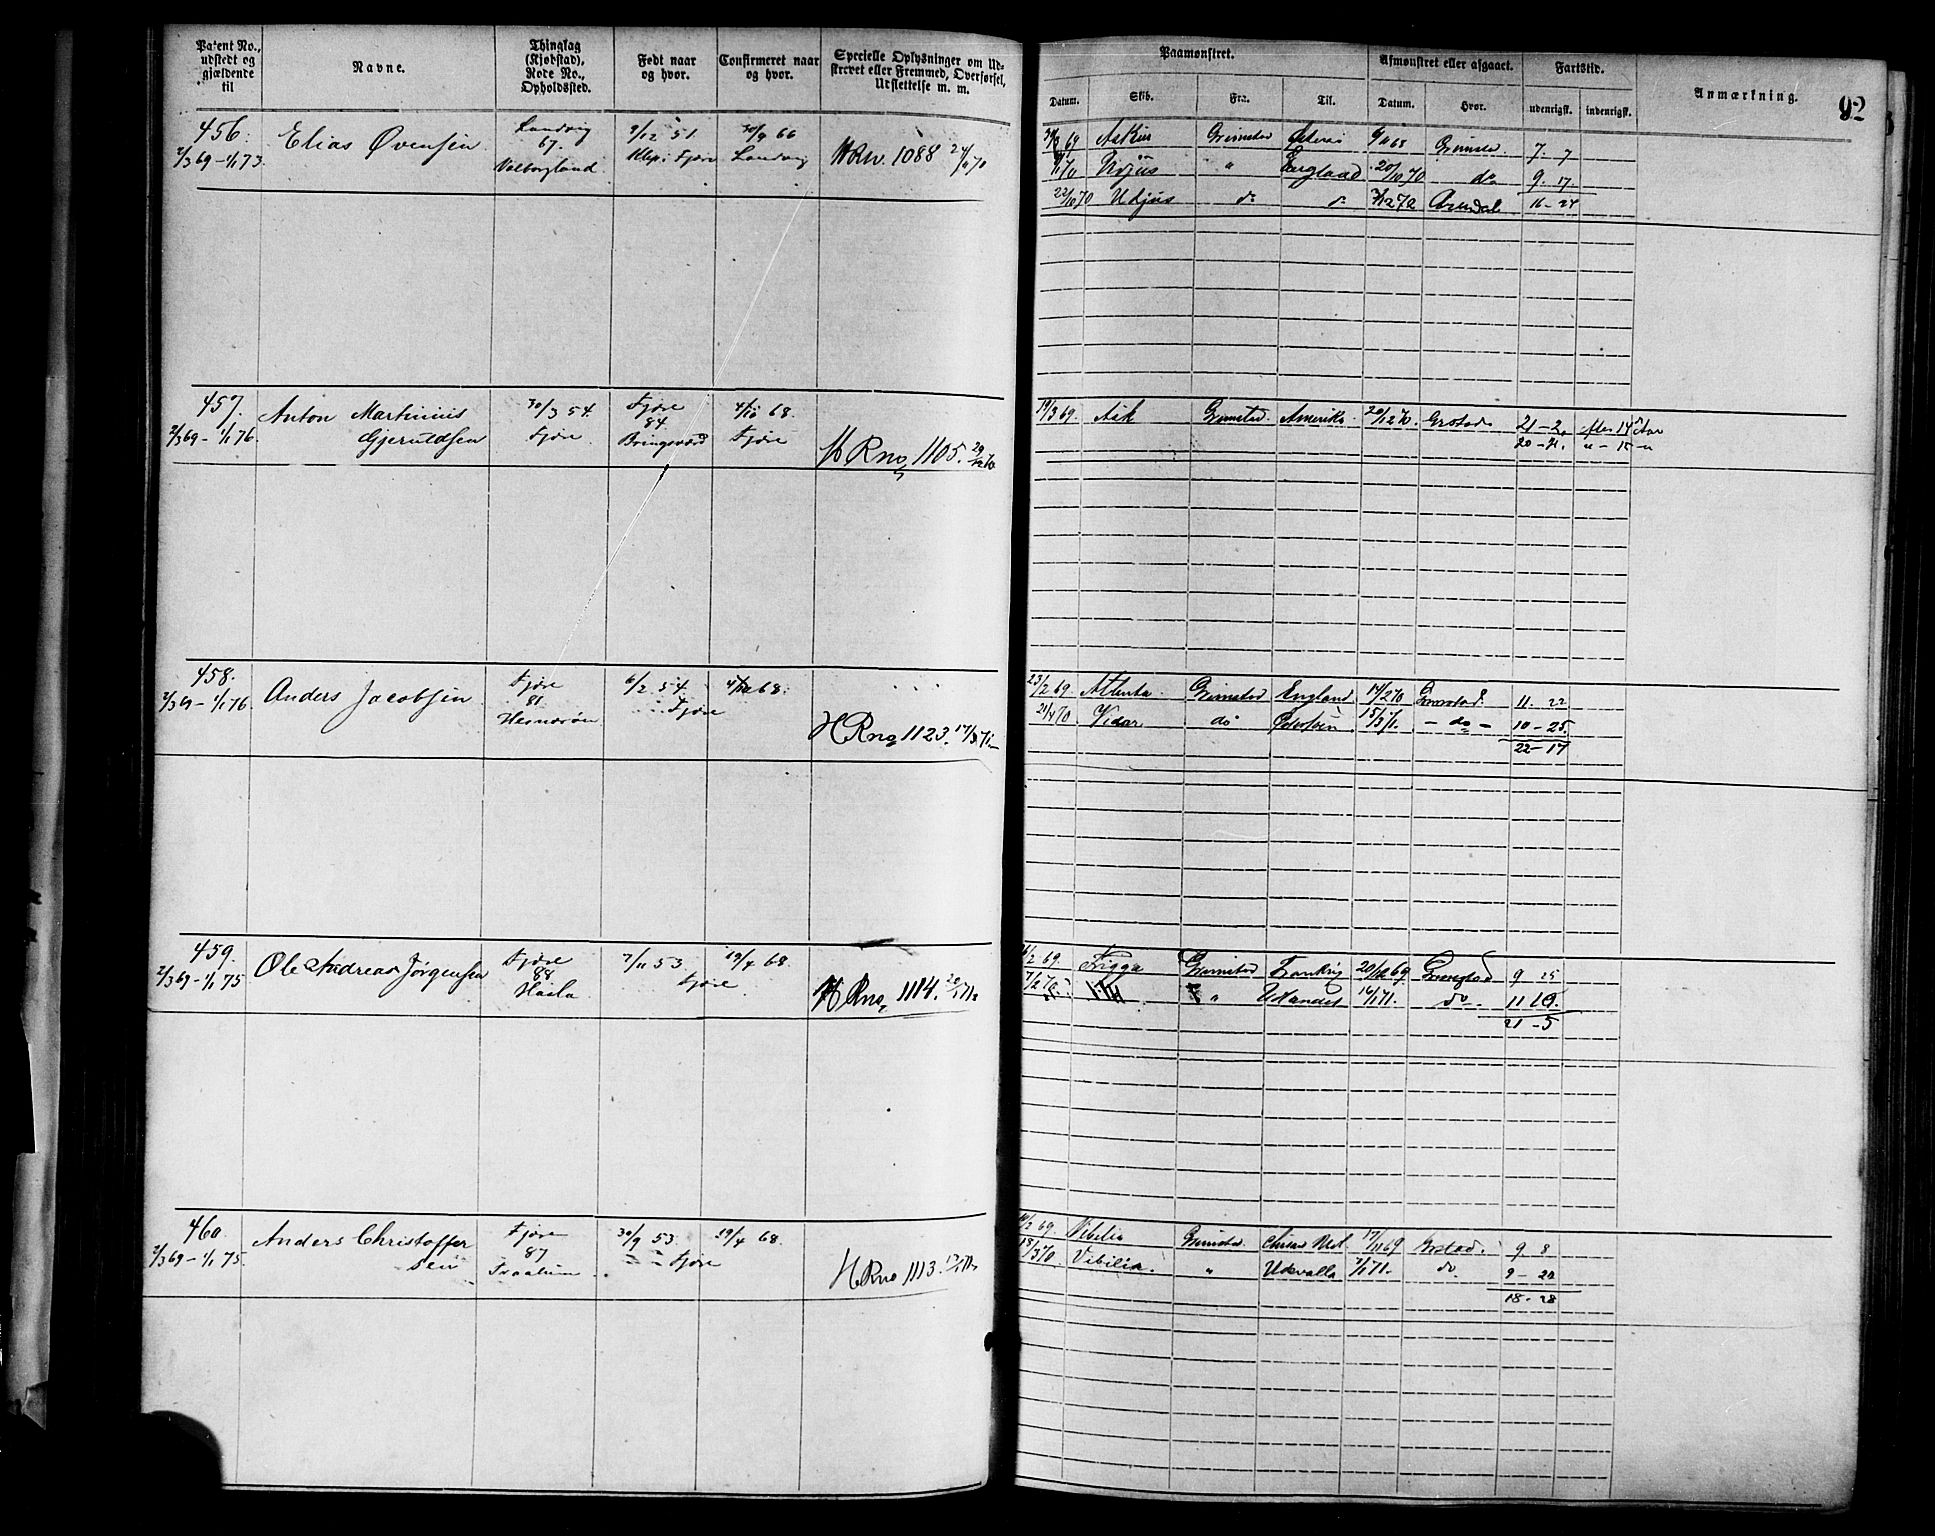 Patent No., udstedt og gjældende til
Navne.
Thinglag (Kjøbstad), Rode No., Opholdssted.
Født naar og hvor.
Confirmeret naar og hvor.
Specielle Oplysninger om Udskrevet eller Fremmed, Overførsel, Udslettelse m. m.
Paamønstret.
Datum.
Skib.
Fra.
Til.
Afmønstret eller afgaaet.
Datum.
Hvor.
Fartstid.
udenrigsk.
indenrigsk.
Anmærkning.
92
456.
2/3 69 - 1/1 73.
Elias Øvensen
Landvig
67.
Valborgland.
9/12 51
Fjære
30/9 66
Landvig
1088 24/10 70
Grimstad
7. 7
England 20/10 70 do 9. 17.
22/10 70 do Arendal 16 - 24
457.
2/3 69 - 1/1 76.
Anton Martinius
Gjeruldsen
30/3 54.
Fjære
Fjære
84.
Bringsværd
4/10 68.
Fjære
H Rno 1105. 29/12 70
19/3 69. Ask Grimstad. Amerika. 20/12 70 Grstad
20 - 21. " - 15 - "
458.
2/3 69 - 1/1 76.
Anders Jacobsen
Fjære
81
Hesnesøen
6/2 54.
Fjære
4/10 68.
H Rno 1123. 17/3 71.
23/2 69. Attenta. Grimstad England 14/2 70 Grimstad. 11. 22
21/4 70 Vidar do Østersøen 15/3 71. - do - 10 - 25.
22 - 17
459.
2/3 69 - 1/1 75
Ole Andreas Jørgensen
Fjære
88
Hasla
7/11 53.
Fjære
19/4 68.
H Rno 1114.
69. Frigga Grimstad 20/12 69. Grimstad 9 25
" 16/1 71. do. 11 10.
21 - 5
460.
2/3 69 - 1/1 75.
Anders Christoffer
sen
Fjære
87
30/9 53.
Fjære
19/4 68.
H Rno 1113.
69. Vibilia Grimstad. 17/11 69 Grstad. 9. 8
18/3 70. Vibilia. " Udevalla 7/1 71. do. 9 - 20
18 - 28